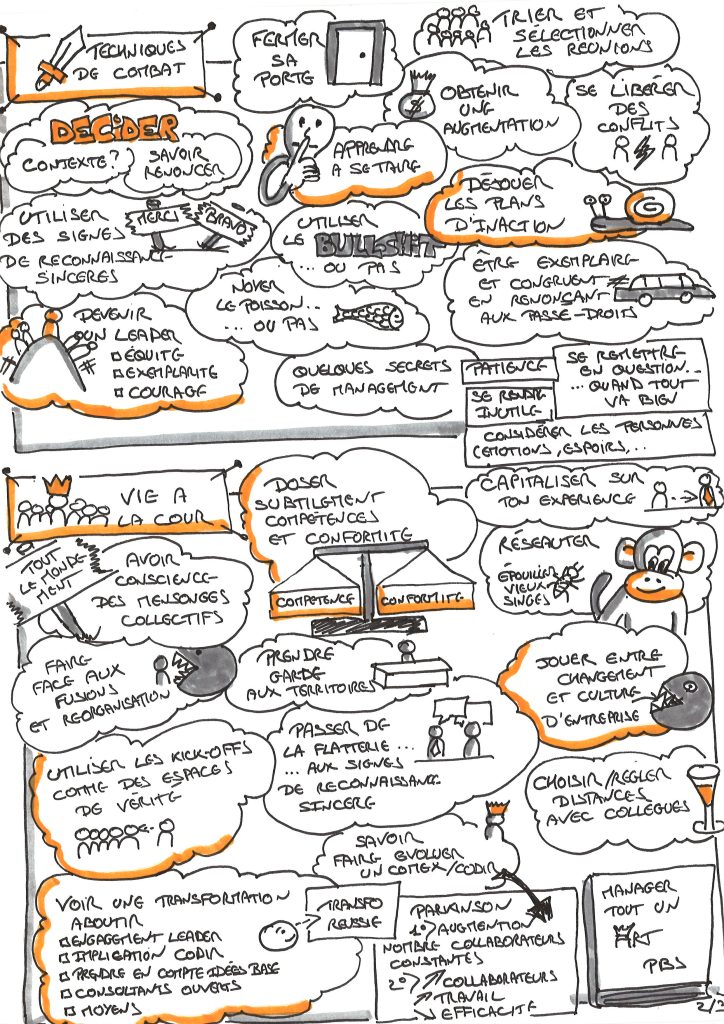 TECHNIQUES
DE COMBAT
FERMER
SA
PORTE
TRIER ET
SÉLECTIONNER
LES REUNIONS
OBTENIR
UNE
AUGMENTATION
SE LIBÉRER
DES
CONFLITS
DECIDER
CONTEXTE?
SAVOIR
RENONCER
APPRENDRE
A SE TAIRE
DÉJOUER
LES PLANS
D'INACTION
UTILISER
DES SIGNES
DE RECONNAISSANCE
SINCERES
MERCI
BRAVO
UTILISER
LE BULLSHIT
... OU PAS
ÊTRE EXEMPLAIRE
ET CONGRUENT
EN RENONÇANT
AUX PASSE-DROITS
NOYER
LE POISSON...
... OU PAS
DEVENIR
UN LEADER
ÉQUITÉ
EXEMPLARITÉ
COURAGE
QUELQUES SECRETS
DE MANAGEMENT
PATIENCE
SE RENDRE
INUTILE
SE REMETTRE
EN QUESTION...
... QUAND TOUT
VA BIEN
CONSIDÉRER LES PERSONNES
(EMOTIONS, ESPOIRS,...
VIE A
LA COUR
DOSER
SUBTILEMENT
COMPÉTENCES
ET CONFORMITÉ
COMPÉTENCE
CONFORMITÉ
CAPITALISER SUR
TON EXPERIENCE
TOUT
LE MONDE
MENT
AVOIR
CONSCIENCE
DES MENSONGES
COLLECTIFS
RÉSEAUTER
ÉPOUILLER
VIEUX
SINGES
FAIRE
FACE AUX
FUSIONS
ET REORGANISATION
PRENDRE
GARDE
AUX TERRITOIRES
JOUER ENTRE
CHANGEMENT
ET CULTURE
D'ENTREPRISE
PASSER DE
LA FLATTERIE...
... AUX SIGNES
DE RECONNAISSANCE
SINCERE
UTILISER LES KICK-OFFS
COMME DES ESPACES
DE VÉRITÉ
CHOISIR/REGLER
DISTANCES
AVEC COLLÈGUES
SAVOIR
FAIRE EVOLUER
UN COMEX/CODIR
VOIR UNE TRANSFORMATION
ABOUTIR
ENGAGEMENT LEADER
IMPLICATION CODIR
PRENDRE EN COMPTE IDÉES BASE
CONSULTANTS OUVERTS
MOYENS
TRANSFO
REUSSIE
PARKINSON
1°) AUGMENTION
NOMBRE COLLABORATEURS
CONSTANTES
2°) COLLABORATEURS
TRAVAIL
EFFICACITÉ
MANAGER
TOUT UN
ART
PBS
2/2